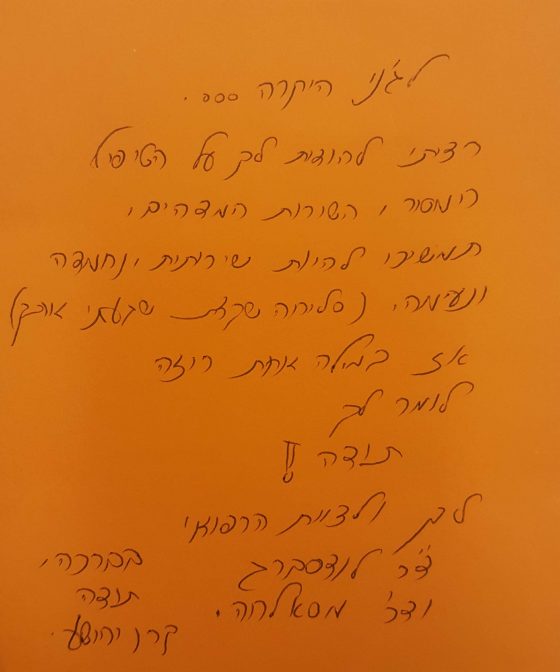 לג'ני היקרה ...
רציתי להודות לך על הטיפול
המסור, השירות המדהים,
תמשיכי להיות שירותית, נחמדה
ונעימה, (סליחה שקצת שגעתי אותך)
אז במילה אחת רוצה
לומר לך
תודה!!
לך ולצוות הרפואי
ד"ר לנדסברג
וד"ר מסאלחה.
בברכה,
תודה
קרן יהושע